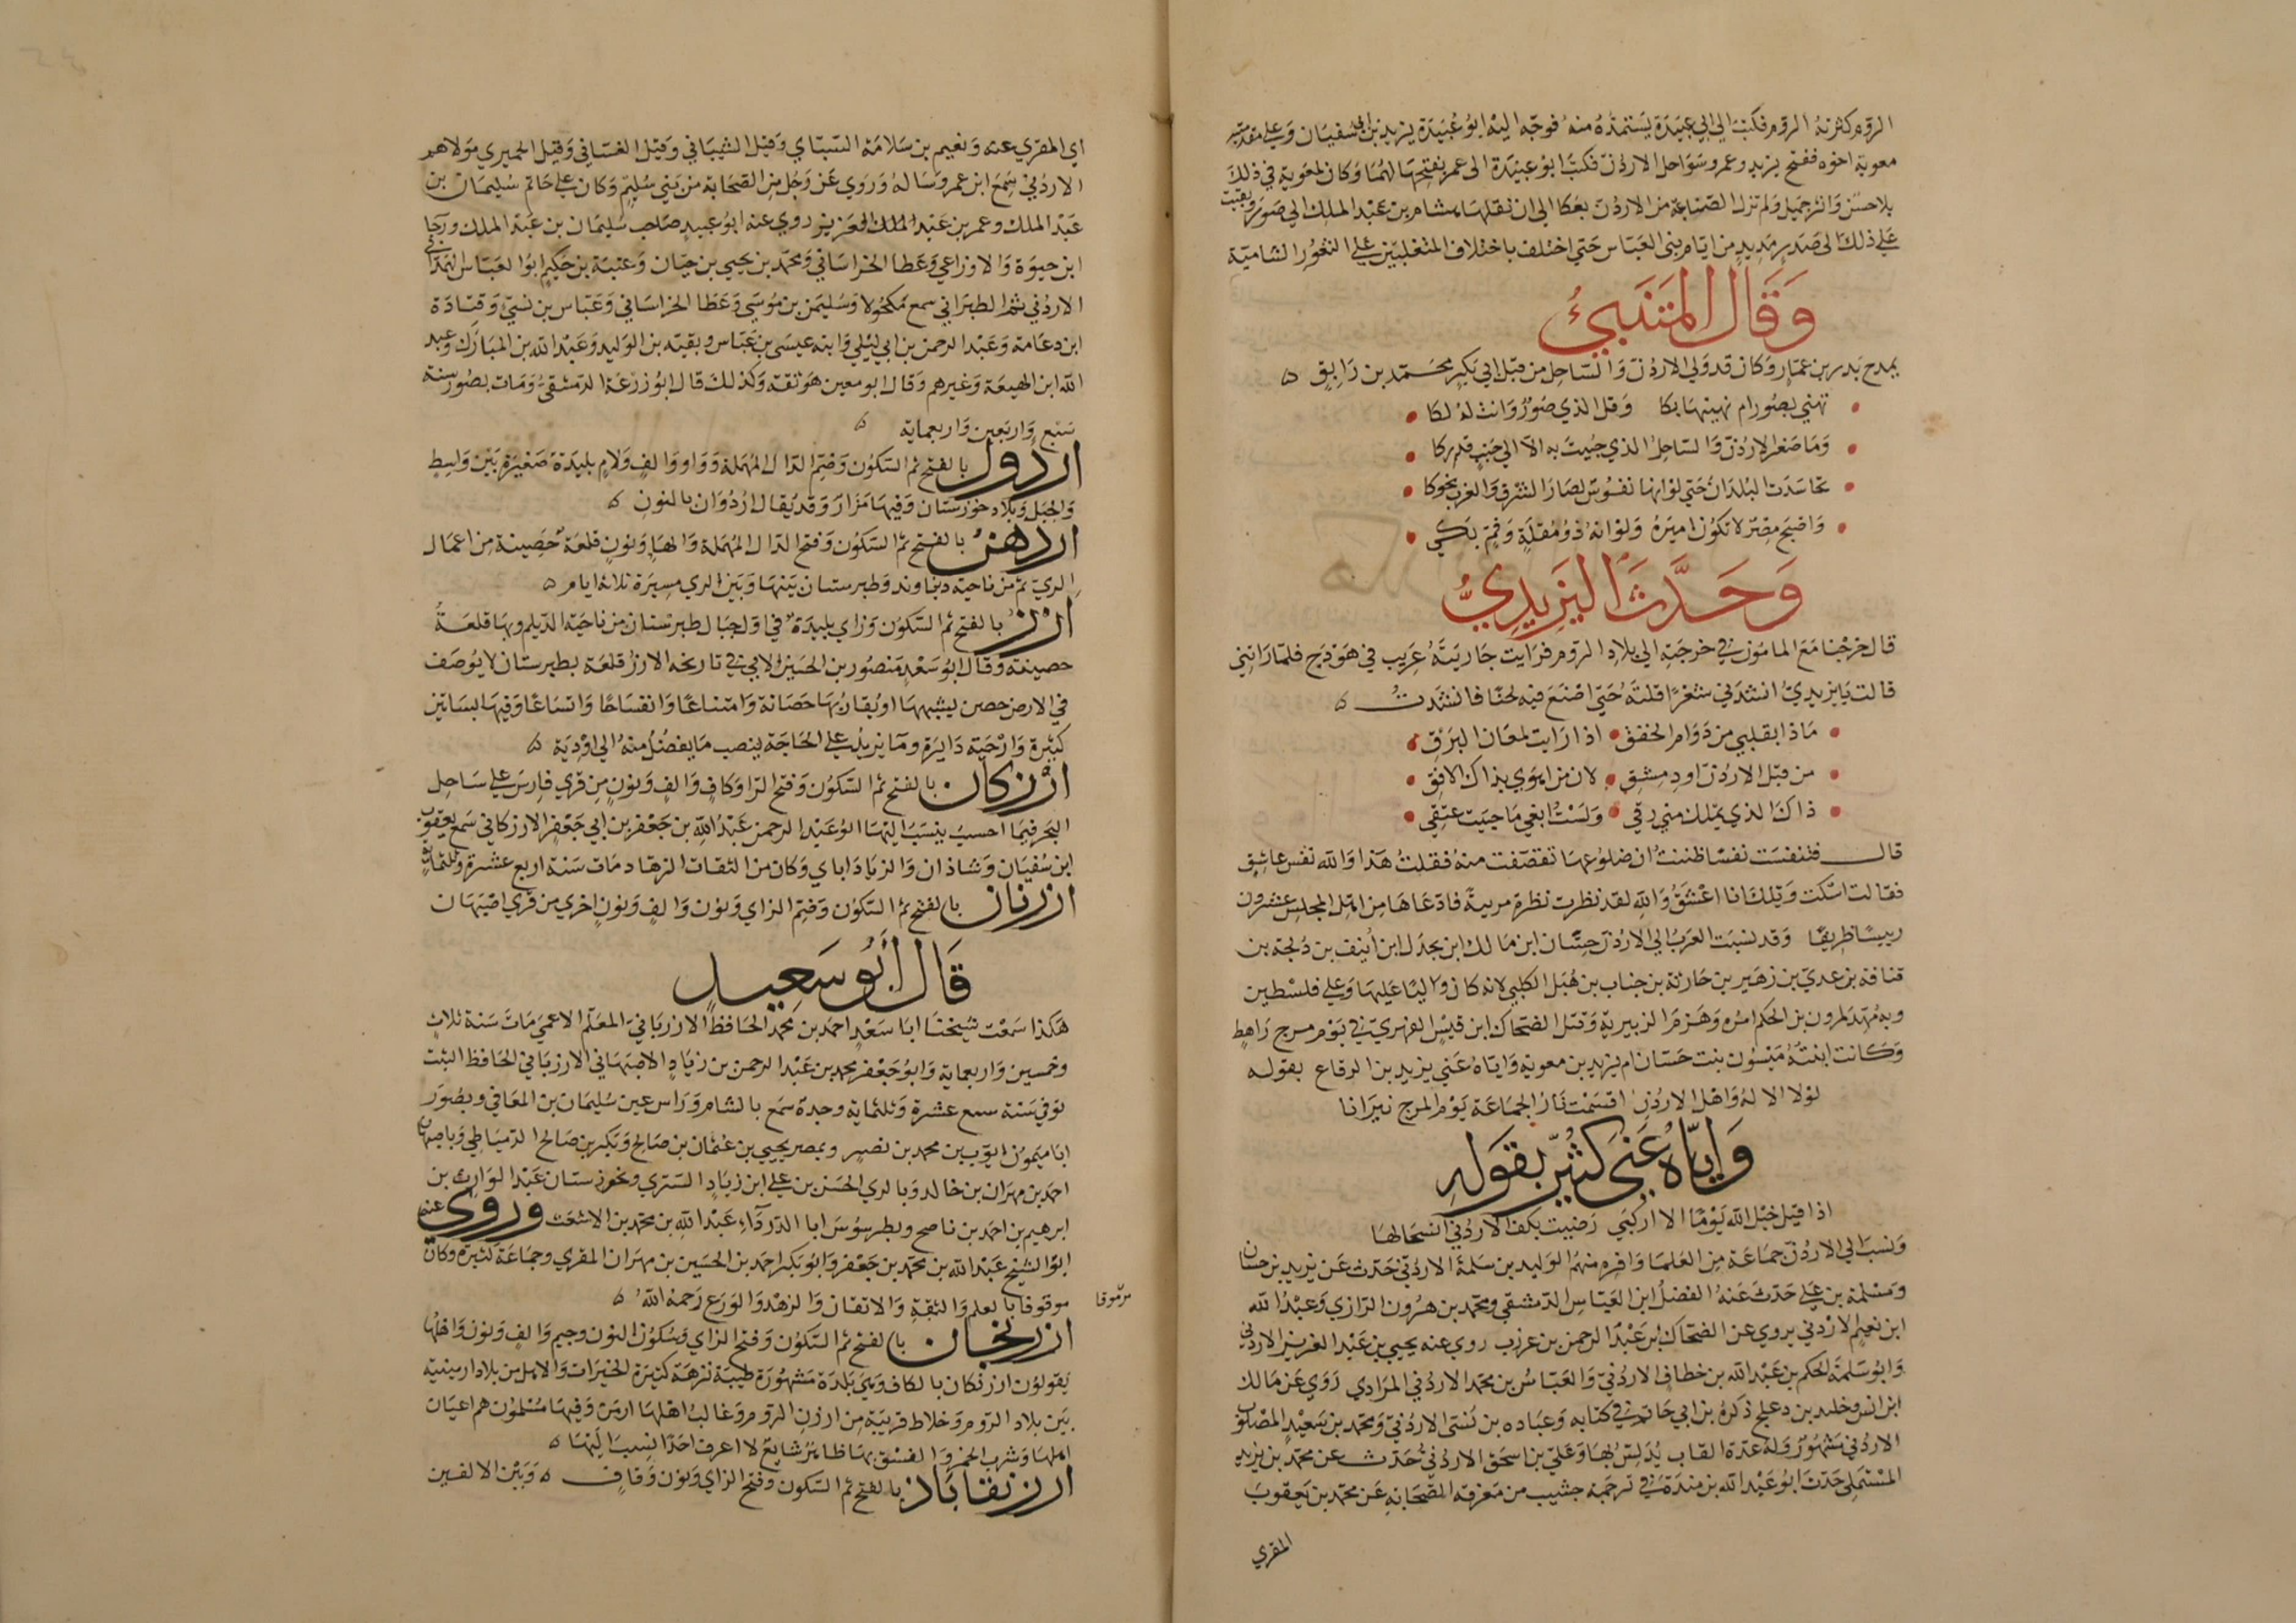 الروم كثرته الروم فكتب الى ابي عبيدة يستمده منه فوجّه اليه ابو عبيدة يزيد بن ابي سفيان وعلى مقدمته
معوية اخوه ففتح يزيد وعمرو سواحل الاردُنّ فكتب ابو عبيدة الى عمر بفتحها لهما وكان لمعوية في ذلك
بلا حسن واثر جميل ولم تزل الصناعة من الاردن بعكا الى ان نقلها هشام بن عبد الملك الى صور وبقيت
على ذلك الى صدر مديد من ايام بني العباس حتي اختلف باختلاف المتغلبين على الثغور الشامية
وَقَالَ المتَنَبِيُ
يمدح بدر بن عمّار وكان قد ولي الاردُنّ والساحل من قبل ابي بكر محمد بن رايق
تهني بصور ام نهينها بكا وقل الذي صور وانت له لكا
وما صغر الاردُنّ والساحل الذي حُبيت به الا الى جنب قدركا
تحاسدت البلدان حتي لوانها نفوس لصار الشرق والغرب نحوكا
واصبح مصر لا تكون اميره ولو انه ذو مقلة وفم بكي
وَحَدَّثَ اليَزِيدِيُّ
قال خرجنا مع المامون في خرجته الى بلاد الروم فرايت جارية عُريب في هودج فلما راتني
قالت يا يزيدي انشدني شعرًا قلتَه حتي اصنع فيه لحنًا فانشدت
ماذا بقلبي من دوام الخفق اذا رايت لمعان البرق
من قبل الاردُنّ او دمشق لان من اهوي بذاك الافق
ذاك الذي يملك مني رقي ولست ابغي ما حييت عتقي
قال فتنفست نفسًا ظننت ان ضلوعها تقصّفت منه فقلت هذا والله نفس عاشق
فقالت اسكت ويلك انا اعشق والله لقد نظرت نظرة مريبة فادّعاها من اهل المجلس عشرون
رييسًا ظريفًا وقد نسبت العرب الى الاردُنّ حسّان ابن مالك ابن بجدل ابن اُنيف بن دُلجة بن
قنافة بن عدي بن زهير بن حارثة بن جناب بن هُبَل الكلبي لانه كان واليًا عليها وعلى فلسطين
وبه مُهّد لمرون بن الحكم امره وهزم الزبيرية وقتل الضحاك ابن قيس الفهري في يوم مرج راهط
وكانت ابنته ميسون بنت حسّان ام يزيد بن معوية واياه عني يزيد بن الرقاع بقوله
لولا الاله واهل الاردُنّ اقتسمت نار الجماعة يوم المرج نيرانا
وَاِيَّاهُ عَنَي كُثَيِّرِ بقَولهِ
اذا قيل خيل الله يومًا الا اركبي رضيت بكف الاردُنّي انسحالها
ونسب الى الاردُنّ جماعة من العلما وافرة منهم الوليد بن سلمة الاردُنّي حدّث عن يزيد بن حسان
ومسلمة بن علي حدث عنه الفضل ابن العباس الدمشقي ومحمد بن هرون الرازي وعبد الله
ابن نعيم الاردُنّي يروي عن الضحاك بن عبد الرحمن بن عرزب روي عنه يحيي بن عبد العزيز الاردني
وابو سلمة الحكم بن عبد الله بن خطاف الاردُنّي والعباس بن محمد الاردُنّي المرادي روي عن مالك
ابن انس وخليد بن دعلج ذكره بن ابي حاتم في كتابه وعباده بن نسّي الاردُنّي ومحمد بن سعيد المصلوب
الاردُنّي مشهور وله عدة القاب يُدلّس بها وعلي بن اسحق الاردُنّي حدّث عن محمد بن يزيد
المستملي حدث ابو عبد الله بن مندة في ترجمة خشيب من معرفة الصحابة عن محمد بن يعقوب
المقري
اي المقري عنه ونعيم بن سلامة السبّاي وقيل الشيباني وقيل الغسّاني وقيل الحميري مولاهم
الاردُنّي سمع ابن عمر وساله وروي عن رجل من الصحابة من بني سُليم وكان على خاتم سليمان بن
عبد الملك وعمر بن عبد العزيز روي عنه ابو عبيد صاحب سليمان بن عبد الملك ورجا
ابن حيوة والاوزاعي وعطا الخراساني ومحمد بن يحيي بن حبان وعتبة بن حكيم ابو العباس الهمداني
الاردُنّي ثم الطبراني سمع مكحولا وسليمن بن موسي وعطا الخراساني وعباس بن نسيّ وقتادة
ابن دعامة وعبد الرحمن بن ابي ليلي وابنه عيسي بن عباس وبقيّه بن الوليد وعبد الله بن المبارك وعبد
الله ابن الهيعة وغيرهم وقال ابو معين هو ثقة وكذلك قال ابو زرعة الدمشقي ومات بصور سنة
سبع واربعين واربعماية
اردوال بالفتح ثم السكون وضم الدال المهملة وواو والف ولام بليدة صغيرة بين واسط
والجبل وبلاد خوزستان وفيها مزار وقد يقال اردوان بالنون
اردهن بالفتح ثم السكون وفتح الدال المهملة والهاء ونون قلعة حصينة من اعمال
الري ثم من ناحية دنباوند وطبرستان بينها وبين الري مسيرة ثلاثة ايام
ارز بالفتح ثم السكون وزاي بليدة في اول جبال طبرستان من ناحية الديلم وبها قلعة
حصينة وقال ابو سعد منصور بن الحسين الابي في تاريخه الارز قلعة بطبرستان لا يوصف
في الارض حصن ليشبهها او يقاربها حصانة وامتناعًا وانفساحًا واتساعًا وفيها بساتين
كثيرة وارحية دايرة وما يزيد على الحاجة ينصب ما يفضل منه الى اودية
ارزكان بالفتح ثم السكون وفتح الزا وكاف والف ونون من قري فارس على ساحل
البحر فيما احسب ينسب اليها ابو عبد الرحمن عبد الله بن جعفر بن ابي جعفر الارزكاني سمع يعقوب
ابن سفيان وشاذان والزياداباي وكان من الثقات الزهاد مات سنة اربع عشرة وثلثماية
ارزنان بالفتح ثم السكون وضم الزاي ونون والف ونون اخري من قري اصبهان
قَالَ اَبُو سَعِيدٍ
هكذا سمعت شيخنا ابا سعد احمد بن محمد الحافظ الارزناني المعلّم الاعمي مات سنة ثلاث
وخمسين واربعماية وابو جعفر محمد بن عبد الرحمن بن زياد الاصبهاني الارزناني الحافظ الثبت
توفي سنة سبع عشرة وثلثماية وحده سمع بالشام وراس عين سليمان بن المعافي وبصور
ابا ميمون ايوب بن محمد بن نصير وبمصر يحيي بن عثمان بن صالح وبكر بن صالح الدمياطي وباصبهان
احمد بن مهران بن خالد وبالري الحسن بن علي ابن زياد السّتري وبخوزستان عبد الوارث بن
ابرهيم بن احمد بن ناصح وبطرسوس ابا الدرداء عبد الله بن محمد بن الاشعث وروي عنه
ابو الشيخ عبد الله بن محمد بن جعفر وابو بكر احمد بن الحسين بن مهران المقري وجماعة كثيرة وكان
موقوفا بالعلم والثقة والاتقان والزهد والورع رحمه الله
مرموقا
ارزنجان بالفتح ثم السكون وفتح الزاي وسكون النون وجيم والف ونون واهلها
يقولون ارزنكان بالكاف وهي بلدة مشهورة طيبة نزهة كثيرة الخيرات والاهل من بلاد ارمينية
بين بلاد الروم وخلاط قريبة من ارزن الروم وغالب اهلها ارمن وفيها مسلمون هم اعيان
اهلها وشرب الخمر والفسق بها ظاهر شايع لا اعرف احدًا نسب اليها
ارزنقاباذ بالفتح ثم السكون وفتح الزاي ونون وقاف وبين الالفين